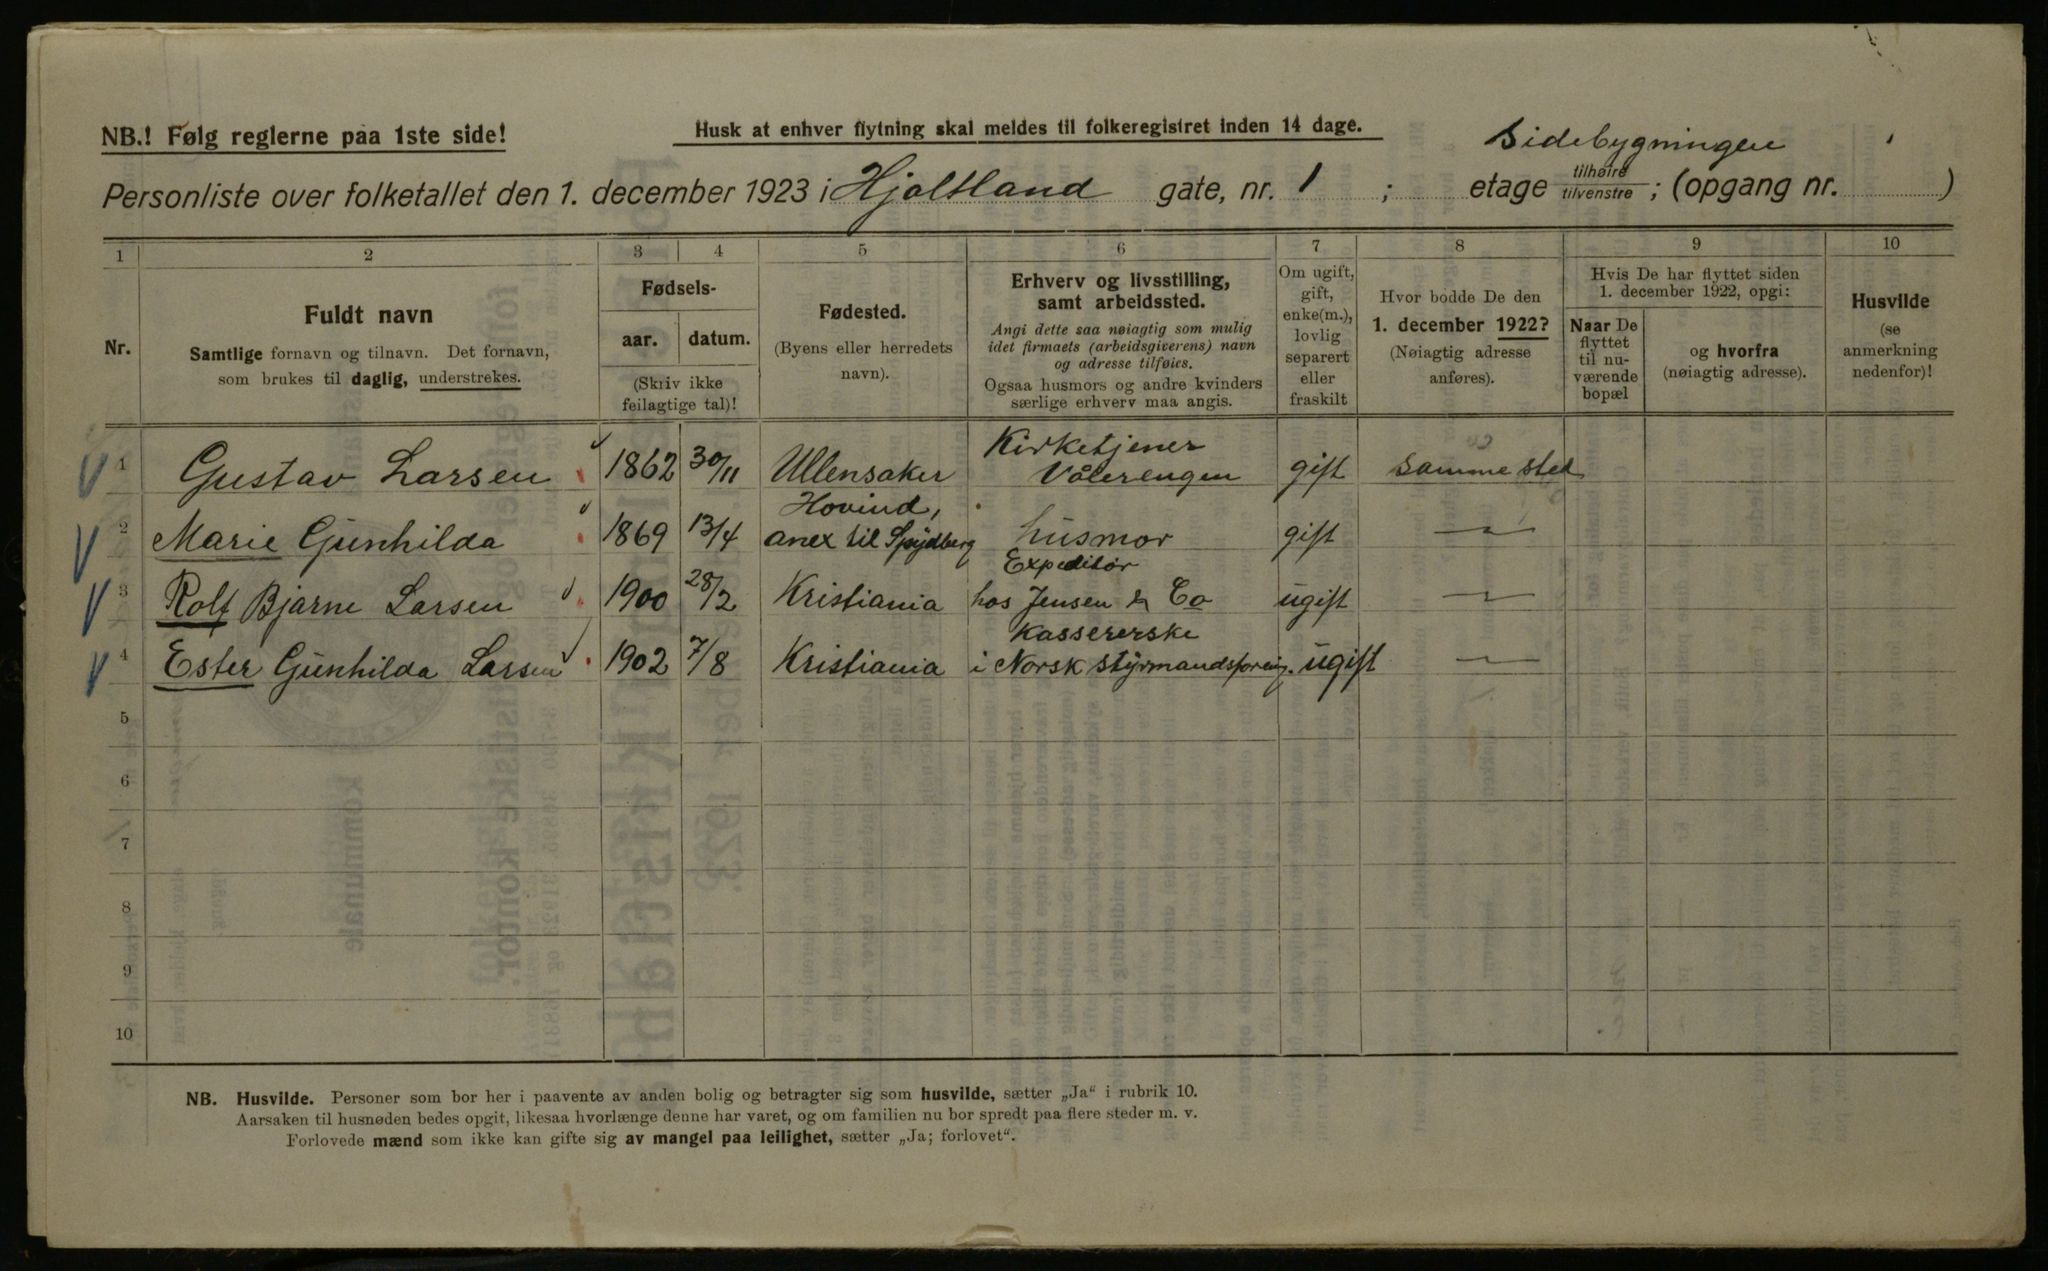 NB.! Følg reglerne paa 1ste side!
Husk at enhver flytning skal meldes til folkeregistret inden 14 dage.
Sidebygningen
Personliste over folketallet den 1. december 1923 i Hjaltland gate, nr. 1 ; etage tilhøire tilvenstre ; (opgang nr. )
1 2 3 4 5 6 7 8 9 10
Nr.
Fuldt navn
Samtlige fornavn og tilnavn. Det fornavn,
som brukes til daglig, understrekes.
Fødsels-
aar. datum.
(Skriv ikke
feilagtige tal)!
Fødested.
(Byens eller herredets
navn).
Erhverv og livsstilling,
samt arbeidssted.
Angi dette saa nøiagtig som mulig
idet firmaets (arbeidsgiverens) navn
og adresse tilføies.
Ogsaa husmors og andre kvinders
særlige erhverv maa angis.
Om ugift,
gift,
enke(m.),
lovlig
separert
eller
fraskilt
Hvor bodde De den
1. december 1922?
(Nøiagtig adresse
anføres).
Hvis De har flyttet siden
1. december 1922, opgi:
Naar De
flyttet
til nu-
værende
bopæl
og hvorfra
(nøiagtig adresse).
Husvilde
(se
anmerkning
nedenfor)!
Kirketjener
1 Gustav Larsen 1862 30/11 Ullensaker Vålerengen gift Samme sted
Hovind,
2 Marie Gunhilda 1869 13/4 anex til Spydberg husmor gift —"—
Expeditør
3 Rolf Bjarne Larsen 1900 28/2 Kristiania hos Jensen & Co ugift —"—
Kassererske
4 Ester Gunhilda Larsen 1902 7/8 Kristiania i Norsk styrmandsforenig. ugift —"—
5
6
7
8
9
10
NB. Husvilde. Personer som bor her i paavente av anden bolig og betragter sig som husvilde, sætter „Ja“ i rubrik 10.
Aarsaken til husnøden bedes opgit, likesaa hvorlænge denne har varet, og om familien nu bor spredt paa flere steder m. v.
Forlovede mænd som ikke kan gifte sig av mangel paa leilighet, sætter „Ja; forlovet“.